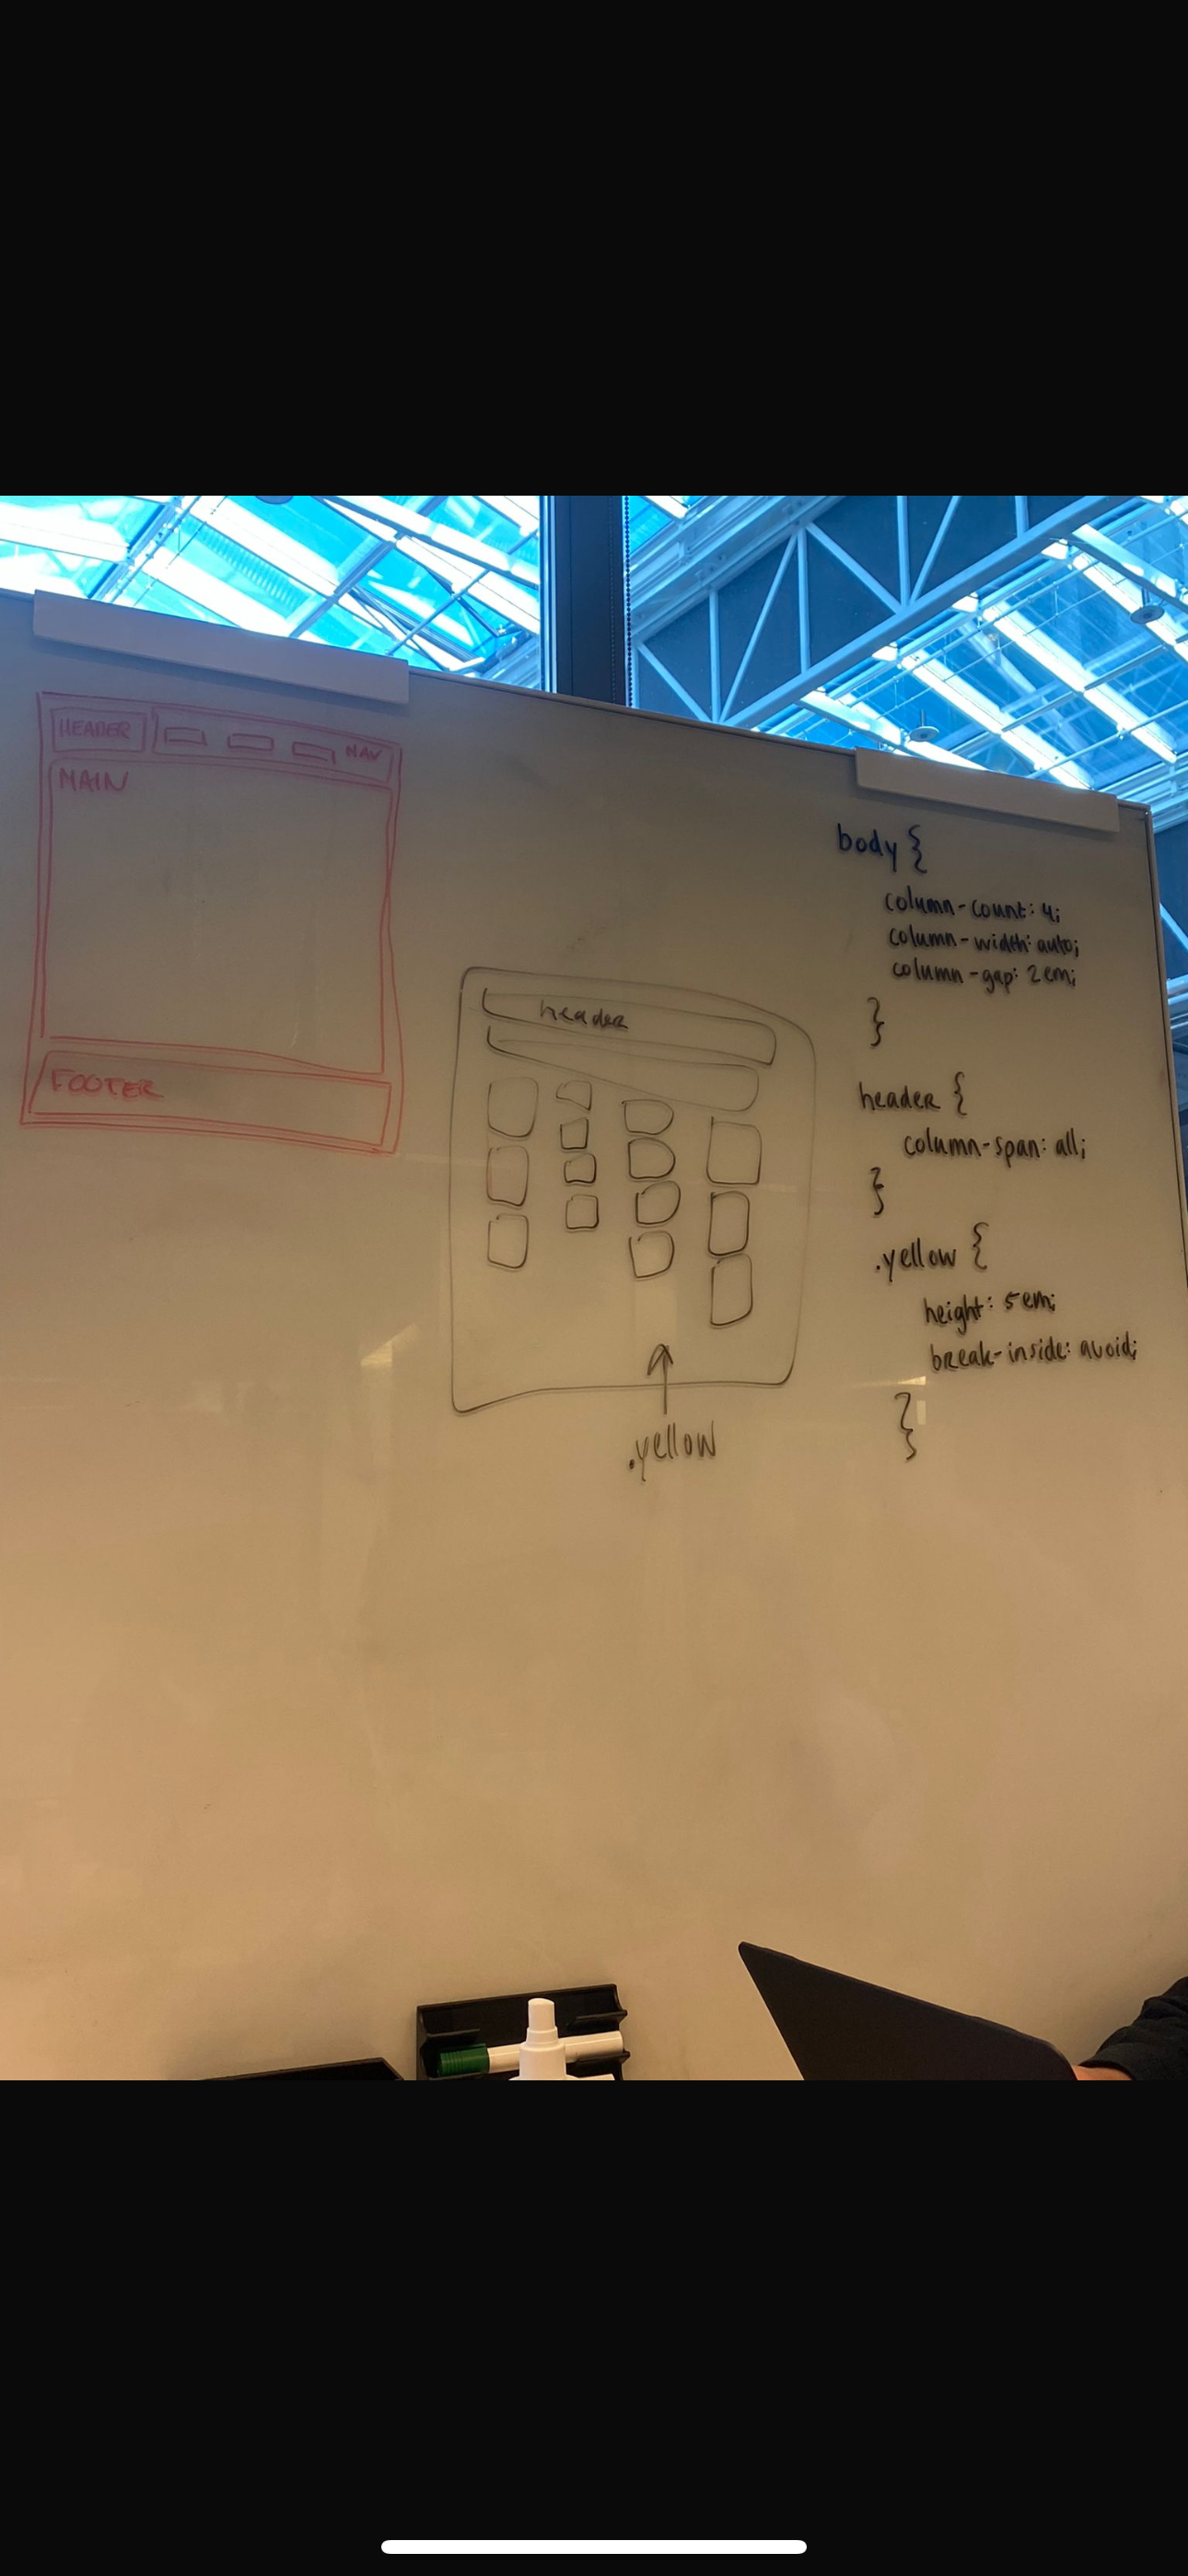 HEADER
NAV
MAIN
FOOTER
header
.yellow
body {
column-count: 4;
column-width: auto;
column-gap: 2em;
}
header {
column-span: all;
}
.yellow {
height: 5em;
break-inside: avoid;
}